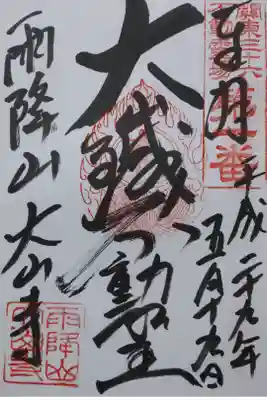 奉拝
關東三十六
不動霊場
第一番
平成二十九年
五月十九日
大鐵不動尊
雨降山 大山寺
雨降山
大山寺